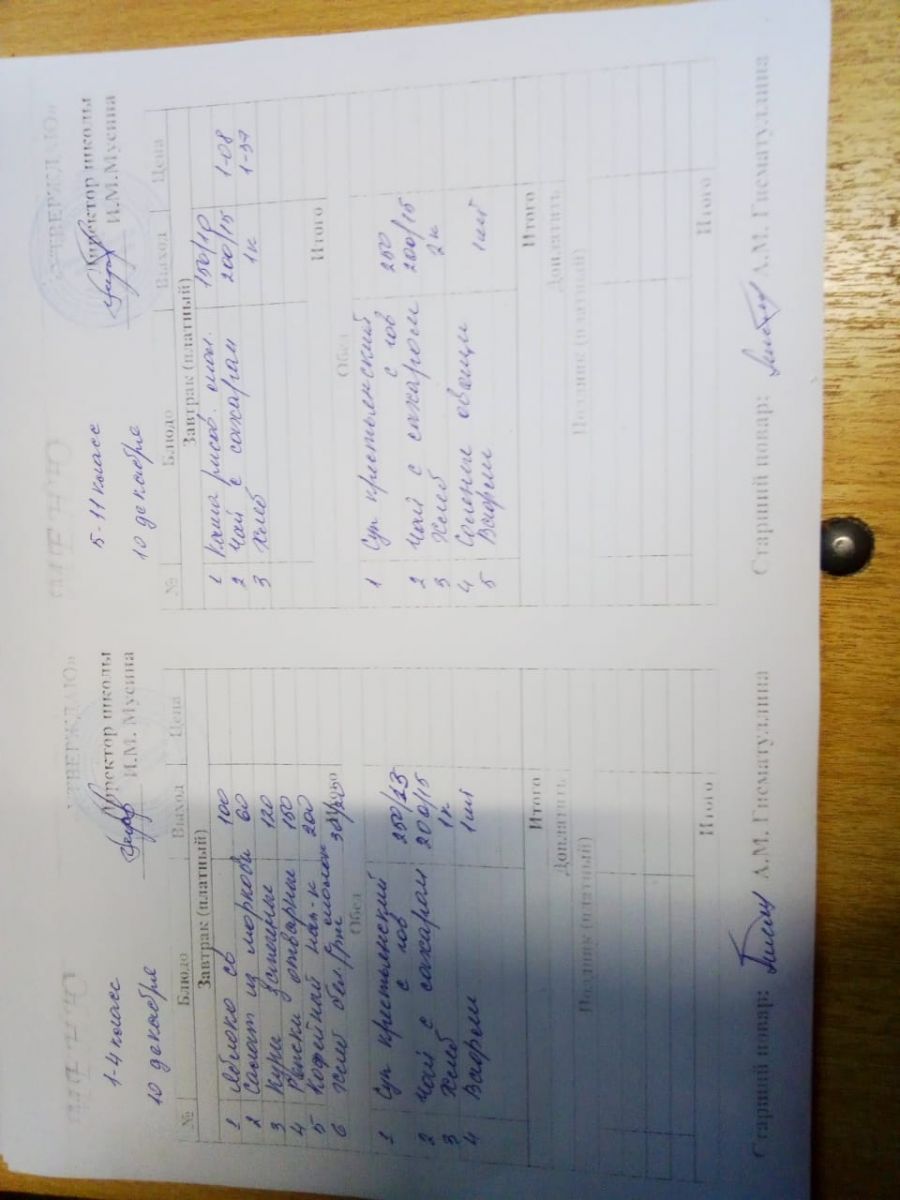 «УТВЕРЖДАЮ»
Директор школы
И.М. Мусина
1-4 класс
10 декабря
№ Блюдо Выход Цена
Завтрак (платный)
1 Яблоко св 100
2 Салат из моркови 60
3 Куры запечены 120
4 Рожки отварные 150
5 Кофейный нап-к 200
6 Хлеб
Обед
1 Суп крестьянский 250/25
с гов
2 Чай с сахаром 200/15
3 Хлеб 1к
4 Вафли 1шт
Итого
Доплатить
Полдник (платный)
Итого
Старший повар: А.М. Гисматуллина
«УТВЕРЖДАЮ»
Директор школы
И.М.Мусина
5-11 класс
10 декабря
№ Блюдо Выход Цена
Завтрак (платный)
1 Каша рисов. молоч. 150/10
2 Чай с сахаром 200/15 1-08
3 Хлеб 1к 1-37
Итого
Обед
1 Суп крестьянский 250
с гов
2 Чай с сахаром 200/15
3 Хлеб 2к
4 Соленые овощи
5 Вафли 1шт
Итого
Доплатить
Полдник (платный)
Итого
Старший повар: А.М. Гисматуллина